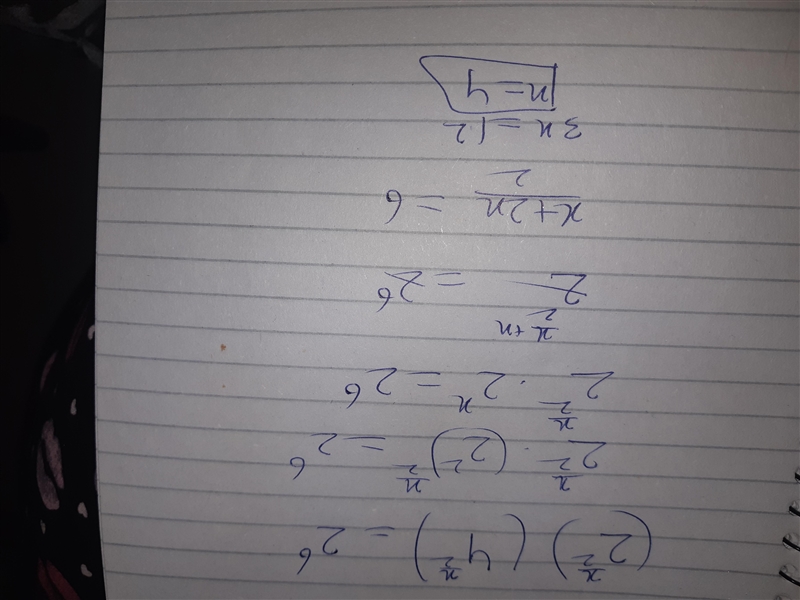 (2^(x/2)) (4^(x/2)) = 2^6
2^(x/2) · (2^2)^(x/2) = 2^6
2^(x/2) · 2^x = 2^6
2^(x/2 + x) = 2^6
(x+2x)/2 = 6
3x = 12
x = 4